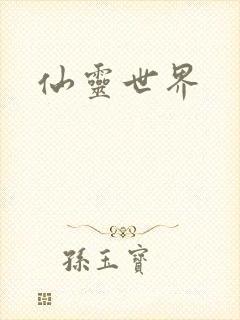 仙靈世界
孫玉寶